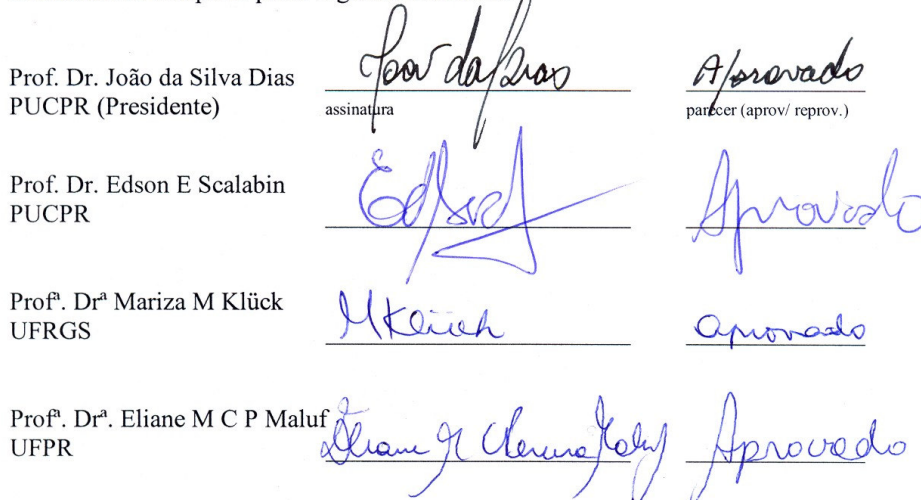 Prof. Dr. João da Silva Dias
PUCPR (Presidente)
assinatura
Aprovado
parecer (aprov/ reprov.)
Prof. Dr. Edson E Scalabin
PUCPR
Aprovado
Profª. Drª Mariza M Klück
UFRGS
MKlück
aprovado
Profª. Drª. Eliane M C P Maluf
UFPR
Aprovado